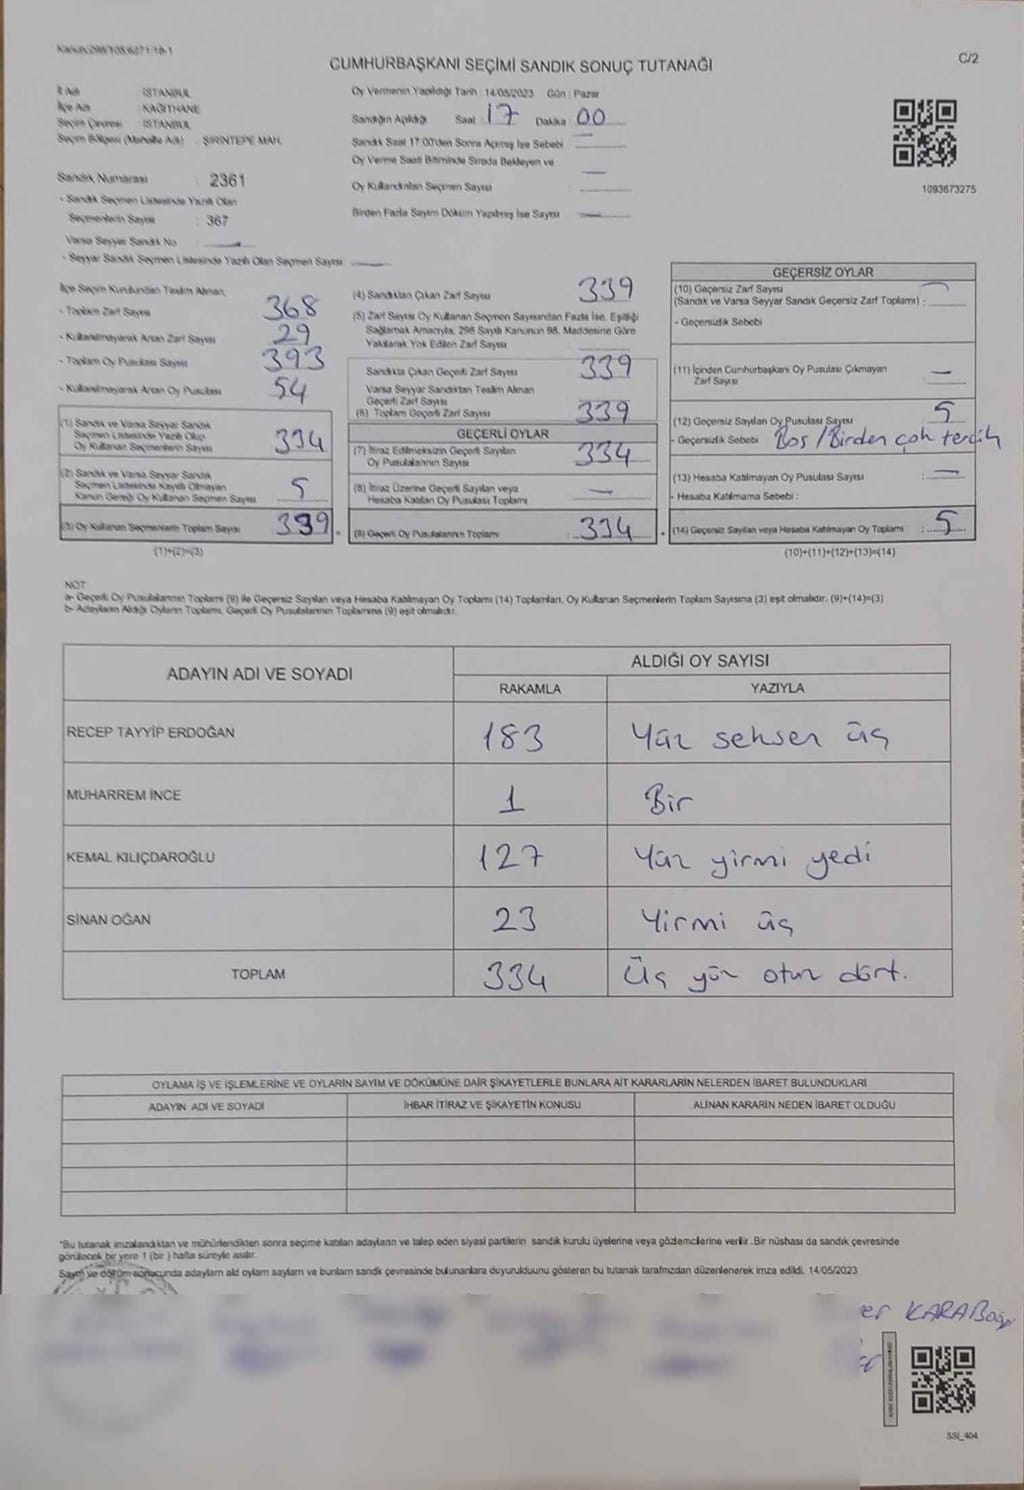 Kanun:298/105,6271/19-1
C/2
CUMHURBAŞKANI SEÇİMİ SANDIK SONUÇ TUTANAĞI
İl Adı : İSTANBUL
İlçe Adı : KAĞITHANE
Seçim Çevresi : İSTANBUL
Seçim Bölgesi (Mahalle Adı) : ŞİRİNTEPE MAH.
Sandık Numarası : 2361
- Sandık Seçmen Listesinde Yazılı Olan
Seçmenlerin Sayısı : 367
Varsa Seyyar Sandık No : —
- Seyyar Sandık Seçmen Listesinde Yazılı Olan Seçmen Sayısı: —
Oy Vermenin Yapıldığı Tarih : 14/05/2023 Gün : Pazar
Sandığın Açıldığı Saat : 17 Dakika : 00
Sandık Saat 17:00'den Sonra Açılmış İse Sebebi : —
Oy Verme Saati Bitiminde Sırada Bekleyen ve
Oy Kullandırılan Seçmen Sayısı : —
Birden Fazla Sayım Döküm Yapılmış İse Sayısı : —
1093673275
İlçe Seçim Kurulundan Teslim Alınan;
- Toplam Zarf Sayısı 368
- Kullanılmayarak Artan Zarf Sayısı 29
- Toplam Oy Pusulası Sayısı 393
- Kullanılmayarak Artan Oy Pusulası 54
(1) Sandık ve Varsa Seyyar Sandık
Seçmen Listesinde Yazılı Olup
Oy Kullanan Seçmenlerin Sayısı 334
(2) Sandık ve Varsa Seyyar Sandık
Seçmen Listesinde Kayıtlı Olmayan
Kanun Gereği Oy Kullanan Seçmen Sayısı 5
(3) Oy Kullanan Seçmenlerin Toplam Sayısı 339
(1)+(2)=(3)
(4) Sandıktan Çıkan Zarf Sayısı 339
(5) Zarf Sayısı Oy Kullanan Seçmen Sayısından Fazla İse, Eşitliği
Sağlamak Amacıyla, 298 Sayılı Kanunun 98. Maddesine Göre
Yakılarak Yok Edilen Zarf Sayısı
Sandıkta Çıkan Geçerli Zarf Sayısı 339
Varsa Seyyar Sandıktan Teslim Alınan
Geçerli Zarf Sayısı
(6) Toplam Geçerli Zarf Sayısı 339
GEÇERLİ OYLAR
(7) İtiraz Edilmeksizin Geçerli Sayılan
Oy Pusulalarının Sayısı 334
(8) İtiraz Üzerine Geçerli Sayılan veya
Hesaba Katılan Oy Pusulası Toplamı —
(9) Geçerli Oy Pusulalarının Toplamı 334
GEÇERSİZ OYLAR
(10) Geçersiz Zarf Sayısı
(Sandık ve Varsa Seyyar Sandık Geçersiz Zarf Toplamı) : —
- Geçersizlik Sebebi
(11) İçinden Cumhurbaşkanı Oy Pusulası Çıkmayan
Zarf Sayısı —
(12) Geçersiz Sayılan Oy Pusulası Sayısı 5
- Geçersizlik Sebebi Boş / Birden çok tercih
(13) Hesaba Katılmayan Oy Pusulası Sayısı —
- Hesaba Katılmama Sebebi :
(14) Geçersiz Sayılan veya Hesaba Katılmayan Oy Toplamı : 5
(10)+(11)+(12)+(13)=(14)
NOT
a- Geçerli Oy Pusulalarının Toplamı (9) ile Geçersiz Sayılan veya Hesaba Katılmayan Oy Toplamı (14) Toplamları, Oy Kullanan Seçmenlerin Toplam Sayısına (3) eşit olmalıdır. (9)+(14)=(3)
b- Adayların Aldığı Oyların Toplamı, Geçerli Oy Pusulalarının Toplamına (9) eşit olmalıdır.
ADAYIN ADI VE SOYADI
ALDIĞI OY SAYISI
RAKAMLA YAZIYLA
RECEP TAYYİP ERDOĞAN 183 Yüz seksen üç
MUHARREM İNCE 1 Bir
KEMAL KILIÇDAROĞLU 127 Yüz yirmi yedi
SİNAN OĞAN 23 Yirmi üç
TOPLAM 334 Üç yüz otuz dört.
OYLAMA İŞ VE İŞLEMLERİNE VE OYLARIN SAYIM VE DÖKÜMÜNE DAİR ŞİKAYETLERLE BUNLARA AİT KARARLARIN NELERDEN İBARET BULUNDUKLARI
ADAYIN ADI VE SOYADI İHBAR İTİRAZ VE ŞİKAYETİN KONUSU ALINAN KARARIN NEDEN İBARET OLDUĞU
*Bu tutanak imzalandıktan ve mühürlendikten sonra seçime katılan adayların ve talep eden siyasi partilerin sandık kurulu üyelerine veya gözlemcilerine verilir.Bir nüshası da sandık çevresinde
görülecek bir yere 1 (bir ) hafta süreyle asılır.
Sayım ve döküm sonucunda adayların aldı oyların sayların ve bunların sandk çevresinde bulunanlara duyurulduunu gösteren bu tutanak tarafmzdan düzenlenerek imza edildi. 14/05/2023
er KARABağ
SSI_404